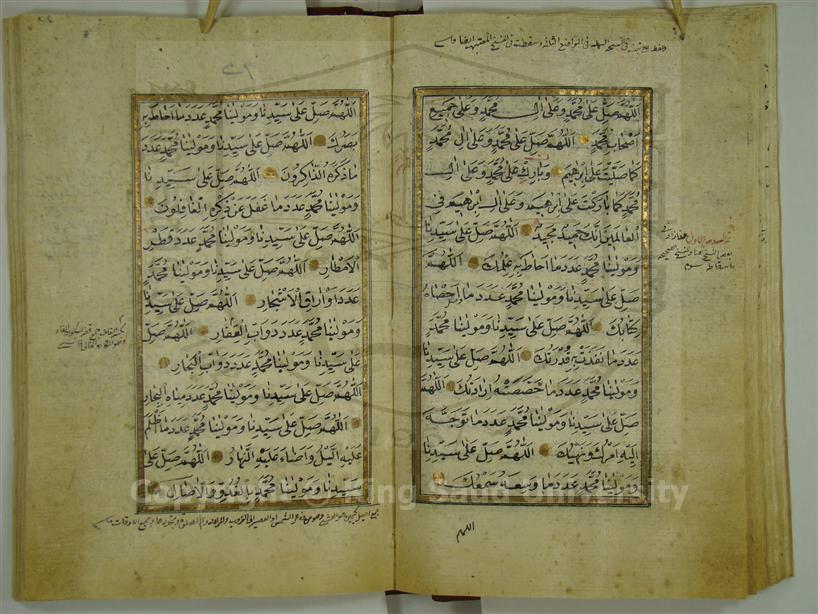 اللهم صل على محمد وعلى ال محمد وعلى جميع
اصحاب محمد اللهم صل على محمد وعلى ال محمد
كما صليت على ابرهيم وبارك على محمد وعلى ال
محمد كما باركت على ابرهيم وعلى ال ابرهيم في
العالمين انك حميد مجيد اللهم صل على سيدنا
ومولينا محمد عدد ما احاط به علمك اللهم
صل على سيدنا ومولينا محمد عدد ما احصاه
كتابك اللهم صل على سيدنا ومولينا محمد
عدد ما نفذت به قدرتك اللهم صل على سيدنا
ومولينا محمد عدد ما خصصته ارادتك اللهم
صل على سيدنا ومولينا محمد عدد ما توجه
اليه امرك ونهيك اللهم صل على سيدنا
ومولينا محمد عدد ما وسعه سمعك
اللهم
اللهم صل على سيدنا ومولينا محمد عدد ما احاط به
بصرك اللهم صل على سيدنا ومولينا محمد عدد
ما ذكره الذاكرون اللهم صل على سيدنا
ومولينا محمد عدد ما غفل عن ذكره الغافلون
اللهم صل على سيدنا ومولينا محمد عدد قطر
الامطار اللهم صل على سيدنا ومولينا محمد
عدد اوراق الاشجار اللهم صل على سيدنا
ومولينا محمد عدد دواب القفار اللهم صل
على سيدنا ومولينا محمد عدد دواب البحار
اللهم صل على سيدنا ومولينا محمد عدد مياه البحار
اللهم صل على سيدنا ومولينا محمد عدد ما اظلم
عليه اليل واضاء عليه النهار اللهم صل على
سيدنا ومولينا محمد بالغدو والاصال
Copyright © King Saud University